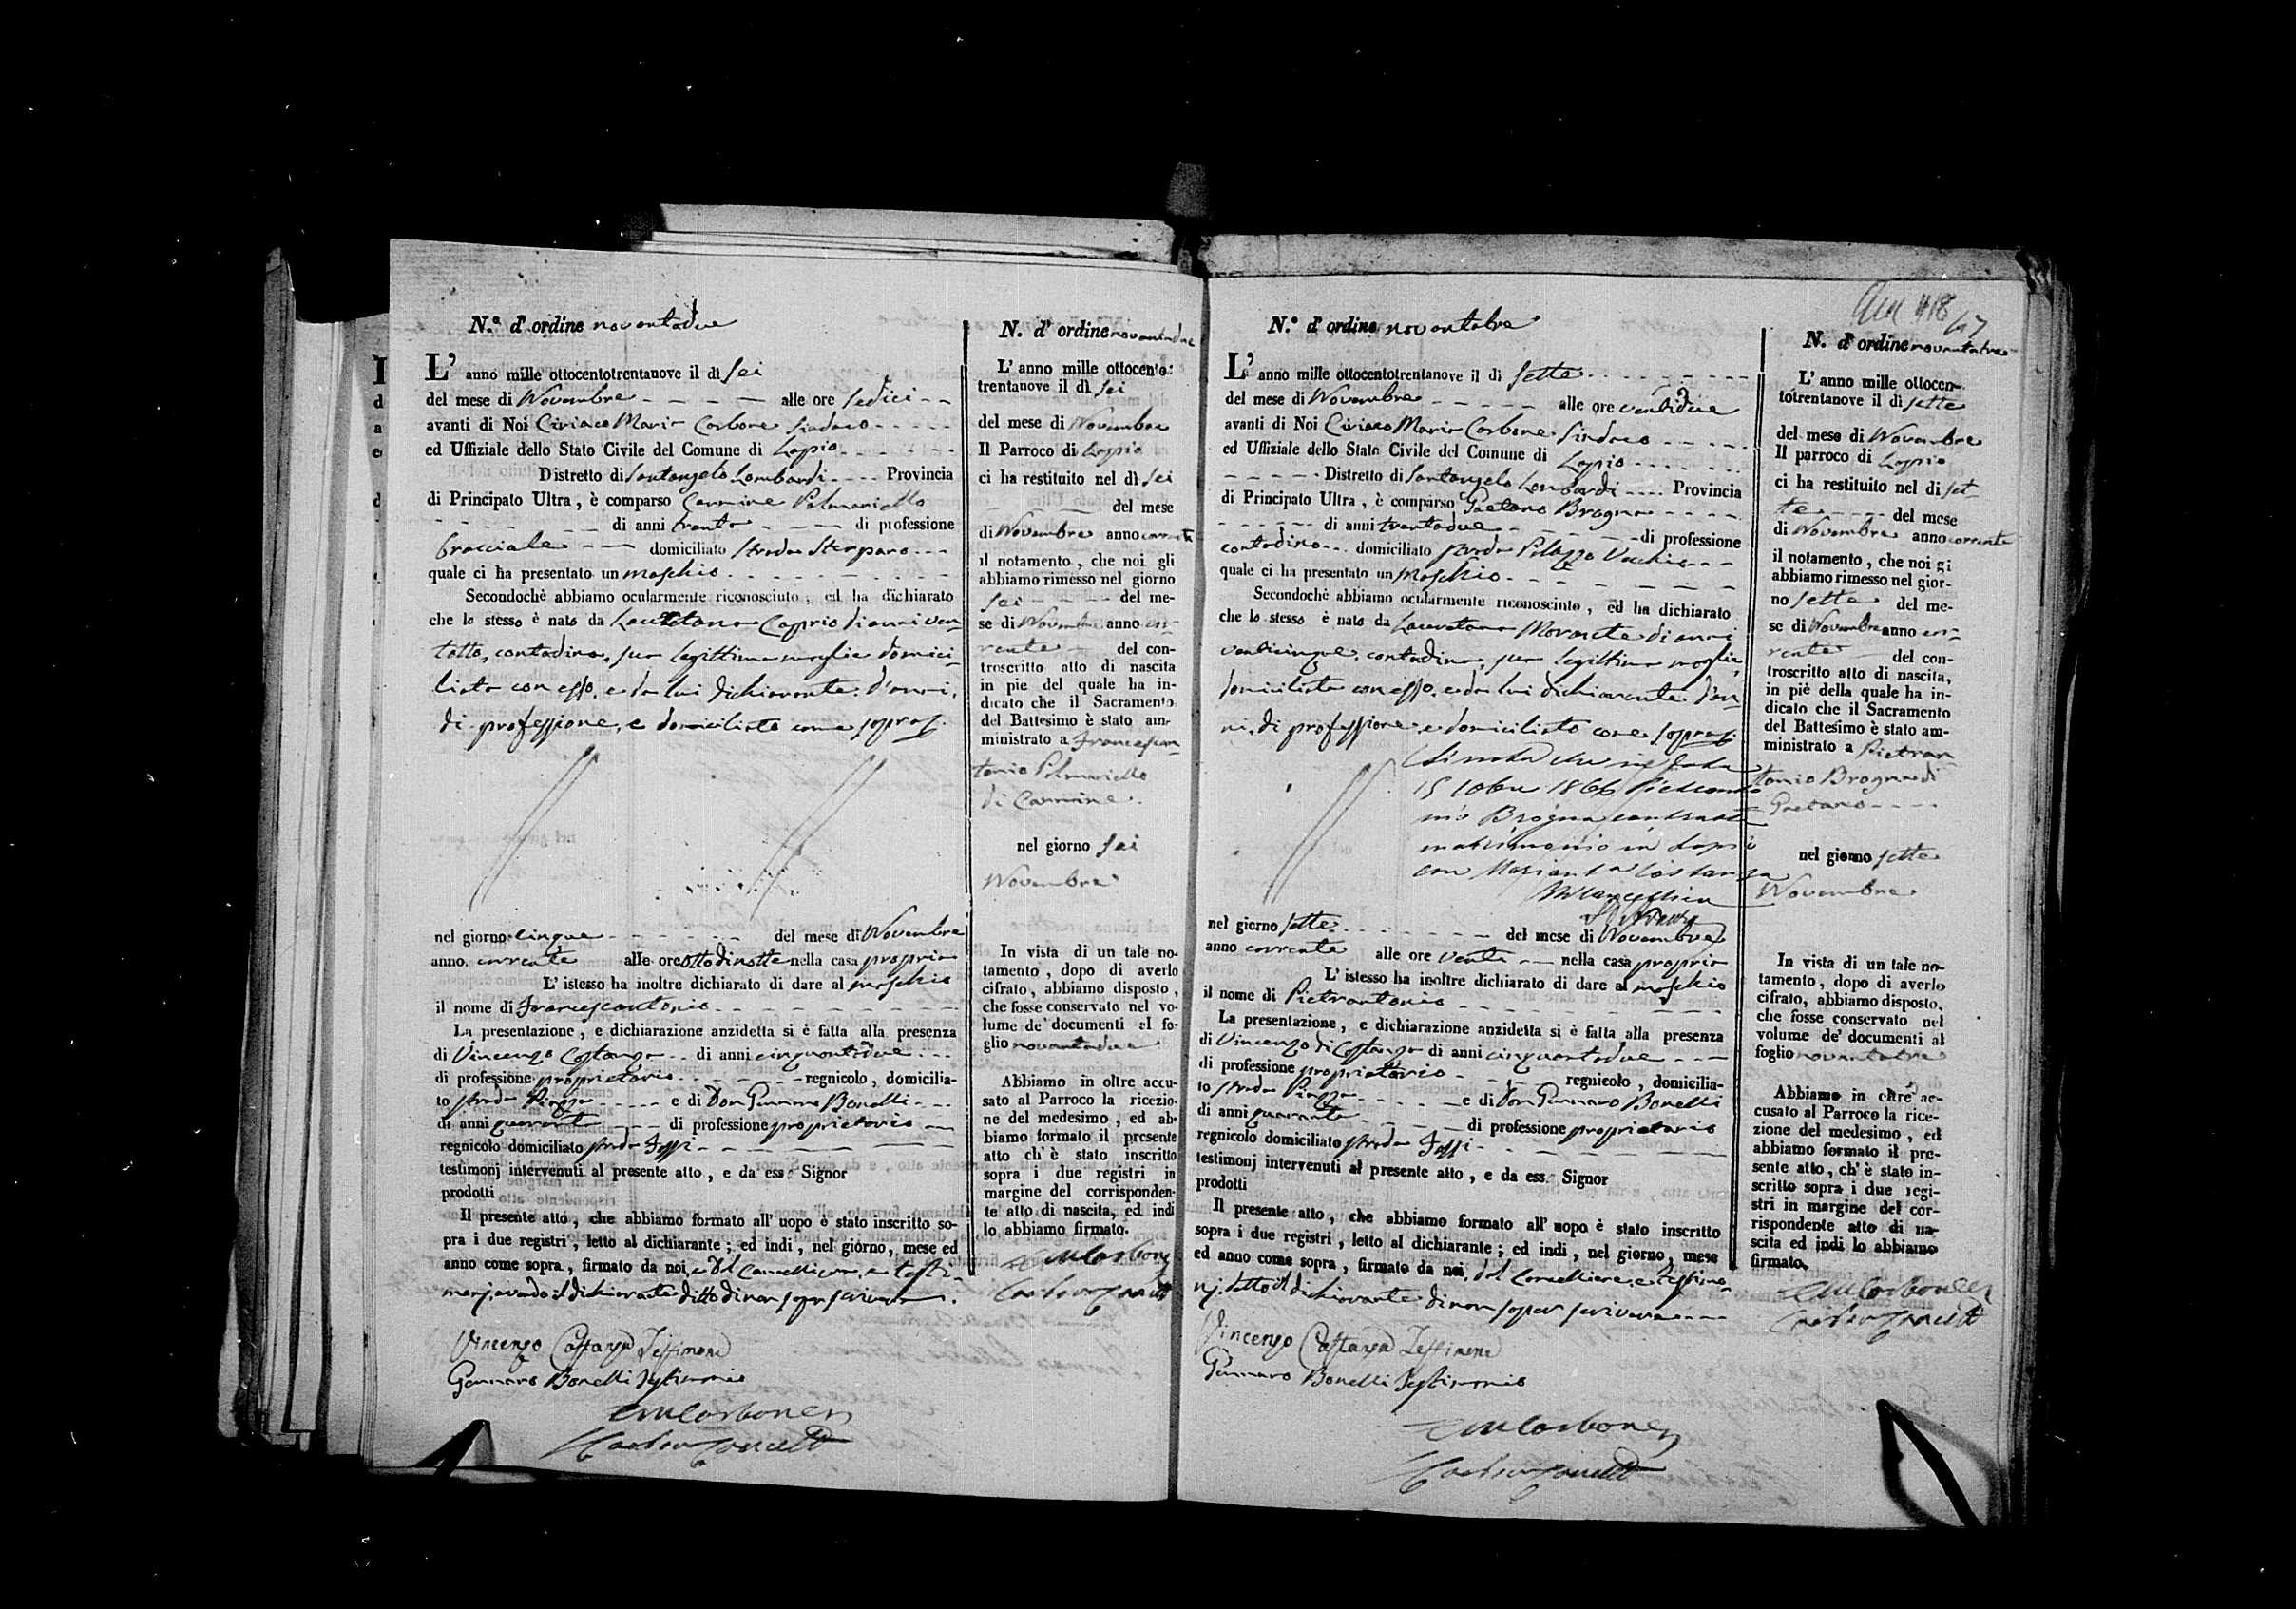 N.º d'ordine novantadue
L'anno mille ottocentotrentanove il dì sei
del mese di Novembre alle ore sedici
avanti di Noi Ciriaco Maria Carbone Sindaco
ed Uffiziale dello Stato Civile del Comune di Lapio
Distretto di Santangelo Lombardi Provincia
di Principato Ultra, è comparso Carmine Palmariello
di anni trenta di professione
bracciale domiciliato strada Sterparo
quale ci ha presentato un maschio
Secondochè abbiamo ocularmente riconosciuto, ed ha dichiarato
che lo stesso è nato da Caprio di anni ven-
totto, contadina, sua legittima moglie domici-
liata con esso, e da lui dichiarante d'anni,
di professione, e domiciliato come sopra
nel giorno cinque del mese di Novembre
anno corrente alle ore otto di notte nella casa propria
L'istesso ha inoltre dichiarato di dare al maschio
il nome di Francescantonio
La presentazione, e dichiarazione anzidetta si è fatta alla presenza
di Vincenzo Costanza di anni cinquantadue
di professione proprietario regnicolo, domicilia-
to strada Piazza e di Don Gennaro Bonelli
di anni quaranta di professione proprietario
regnicolo domiciliato strada Fossi
testimonj intervenuti al presente atto, e da essi Signor
prodotti
Il presente atto, che abbiamo formato all'uopo è stato inscritto so-
pra i due registri, letto al dichiarante; ed indi, nel giorno, mese ed
anno come sopra, firmato da noi, e dal Cancelliere, e testi-
monj, avendo il dichiarante ditto di non saper scrivere.
Vincenzo Costanza Testimone
Gennaro Bonelli Testimonio
CMCarbone
N. d'ordine novantadue
L'anno mille ottocento:
trentanove il dì sei
del mese di Novembre
Il Parroco di Lapio
ci ha restituito nel dì sei
del mese
di Novembre anno corrente
il notamento, che noi gli
abbiamo rimesso nel giorno
sei del me-
se di Novembre anno cor-
rente del con-
troscritto atto di nascita
in pie del quale ha in-
dicato che il Sacramento
del Battesimo è stato am-
ministrato a Francescan-
tonio Palmariello
di Carmine.
nel giorno sei
Novembre
In vista di un tale no-
tamento, dopo di averlo
cifrato, abbiamo disposto,
che fosse conservato nel vo-
lume de' documenti al fo-
glio novantadue
Abbiamo in oltre accu-
sato al Parroco la ricezio-
ne del medesimo, ed ab-
biamo formato il presente
atto ch'è stato inscritto
sopra i due registri in
margine del corrisponden-
te atto di nascita, ed indi
lo abbiamo firmato.
CMCarbone
N.º d'ordine novantatre
L'anno mille ottocentotrentanove il dì sette
del mese di Novembre alle ore ventidue
avanti di Noi Ciriaco Maria Carbone Sindaco
ed Uffiziale dello Stato Civile del Comune di Lapio
Distretto di Santangelo Lombardi Provincia
di Principato Ultra, è comparso Gaetano Brogna
di anni trentadue di professione
contadino domiciliato strada Palazzo Vecchio
quale ci ha presentato un maschio
Secondochè abbiamo ocularmente riconosciuto, ed ha dichiarato
che lo stesso è nato da Morante di anni
venticinque, contadina, sua legittima moglie,
domiciliata con esso, e da lui dichiarante d'an-
ni, di professione, e domiciliato come sopra
Si nota che in data
15 1866 Pietranto
nio Brogna contratto
matrimonio in Lapio
con Costanza
nel giorno sette del mese di Novembre
anno corrente alle ore venti nella casa propria
L'istesso ha inoltre dichiarato di dare al maschio
il nome di Pietrantonio
La presentazione, e dichiarazione anzidetta si è fatta alla presenza
di Vincenzo di Costanza di anni cinquantadue
di professione proprietario regnicolo, domicilia-
to strada Piazza e di Don Gennaro Bonelli
di anni quaranta di professione proprietario
regnicolo domiciliato strada Fossi
testimonj intervenuti al presente atto, e da essi Signor
prodotti
Il presente atto, che abbiamo formato all'uopo è stato inscritto
sopra i due registri, letto al dichiarante; ed indi, nel giorno, mese
ed anno come sopra, firmato da noi, dal Cancelliere, e testimo-
nj, detto il dichiarante di non saper scrivere
Vincenzo Costanza Testimone
Gennaro Bonelli Testimonio
CMCarbone
47
N. d'ordine novantatre
L'anno mille ottocen-
totrentanove il dì sette
del mese di Novembre
Il parroco di Lapio
ci ha restituito nel dì set-
te del mese
di Novembre anno corrente
il notamento, che noi gi
abbiamo rimesso nel gior-
no sette del me-
se di Novembre anno cor-
rente del con-
troscritto atto di nascita,
in piè della quale ha in-
dicato che il Sacramento
del Battesimo è stato am-
ministrato a Pietran-
tonio Brogna di
Gaetano
nel giorno sette
Novembre
In vista di un tale no-
tamento, dopo di averlo
cifrato, abbiamo disposto,
che fosse conservato nel
volume de' documenti al
foglio novantatre
Abbiamo in oltre ac-
cusato al Parroco la rice-
zione del medesimo, ed
abbiamo formato il pre-
sente atto, ch'è stato in-
scritto sopra i due regi-
stri in margine del cor-
rispondente atto di na-
scita ed indi lo abbiamo
firmato.
CMCarbone